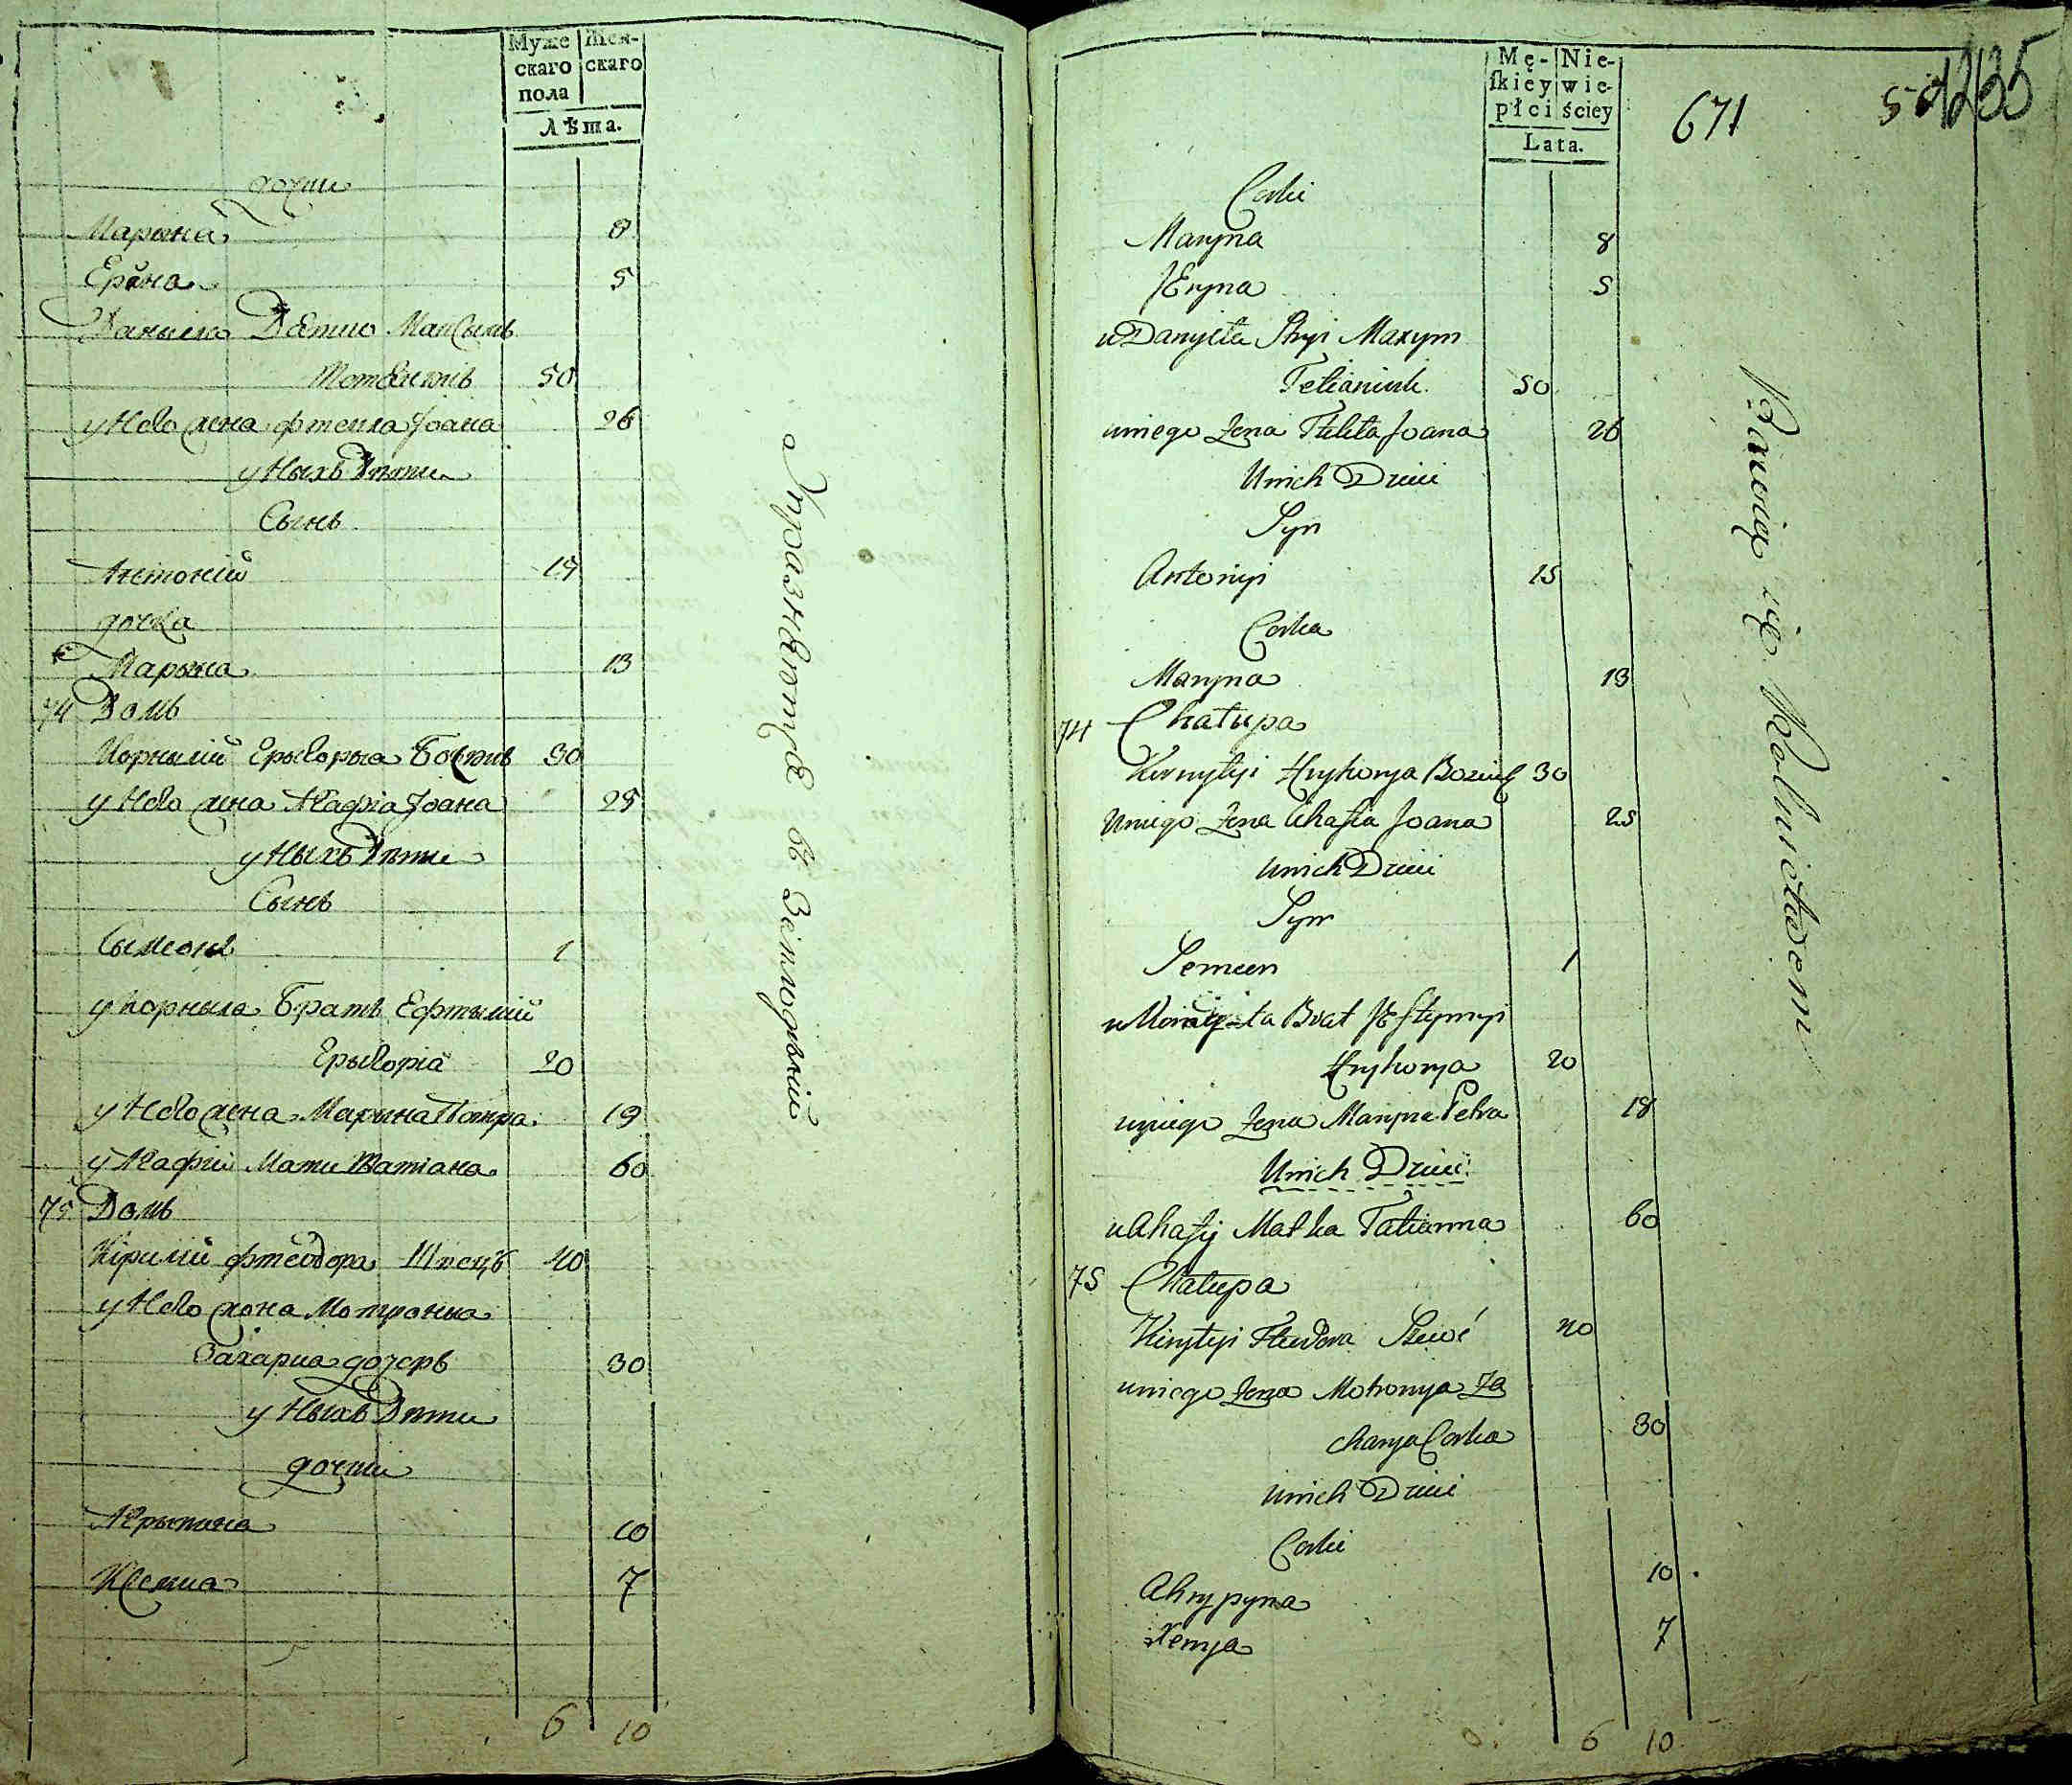 Муже Жен-
скаго скаго
пола
Лѣта.
дочки
Марына 8
Ерина 5
Данила Дятко Максымъ
50
у Него жена Фтекла Іоана 26
у Ныхъ Дѣти
Сынъ
Антоній 15
дочка
Марына 13
74 Домъ
Корнылій Грыгорыа 30
у Него жена Агафіа Іоана 25
у Ныхъ Дѣти
Сынъ
Сымеонъ 1
у Корныла Братъ Ефтымій
Грыгоріа 20
у Него жена Марына Петра 19
у Агафіи Мати Татіана 60
75 Домъ
Кірилій Фтеодора Швецъ 40
у Него жона Мотроныа
Захариа дочерь 30
у Ныхъ Дѣти
дочки
Агрыпина 10
Ксениа 7
6 10
Упразнѣютца въ Земледѣлій
Mę- Nie-
ſkiey wie-
płci ściey
Lata.
671
1235
Corki
Maryna 8
JEryna 5
u Danyiła Stryi Maxym
Tetianiuk 50
u niego Zona Ftekla Joana 26
U nich Dzieci
Syn
Antonyi 15
Corka
Maryna 13
74 Chałupa
Kornyłyi Hryhorya 30
U niego Zona Ahafia Joana 25
U nich Dzieci
Syn
Semeon 1
u Kornyła Brat JEftymyi
Hryhorya 20
u niego Zona Maryna Petra 18
U nich Dzieci
u Ahafij Matka Tatianna 60
75 Chałupa
Kiryłyi Fteodora Szwec 40
u niego Zona Motronya Za
charya Corka 30
U nich Dzieci
Corki
Ahrypyna 10
Xenya 7
6 10
Bawią się Rolnictwem